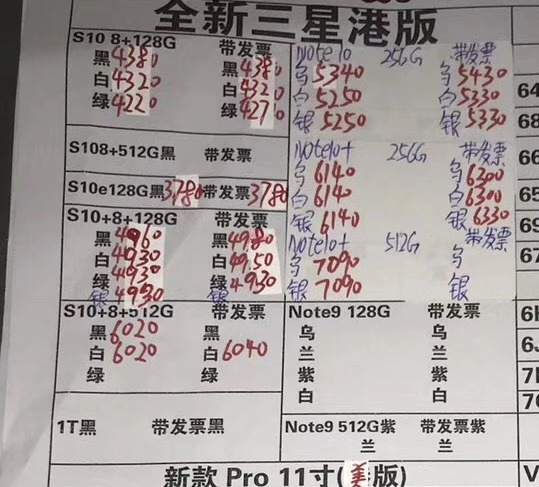 全新三星港版
S10 8+128G 带发票
黑4380 黑4380
白4320 白4320
绿4220 绿427
S108+512G黑 带发票
S10e128G黑3780带发票3780
S10+8+128G 带发票
黑4960 黑4980
白4930 白4950
绿4930 绿4930
银4930 银
S10+8+512G 带发票
黑6020 黑
白6020 白6040
绿 绿
1T黑 带发票黑
Note10 256G 带发票
乌5340 乌5430
白5250 白5330
银5250 银5330
Note10+ 256G 带发票
乌6140 乌6200
白6140 白6300
银6140 银6330
Note10+ 512G 带发票
乌7090 乌
银7090 银
Note9 128G 带发票
乌 乌
兰 兰
紫 紫
白 白
Note9 512G紫 带发票紫
兰 兰
新款 Pro 11寸(美版)
64
68
66
65
69
67